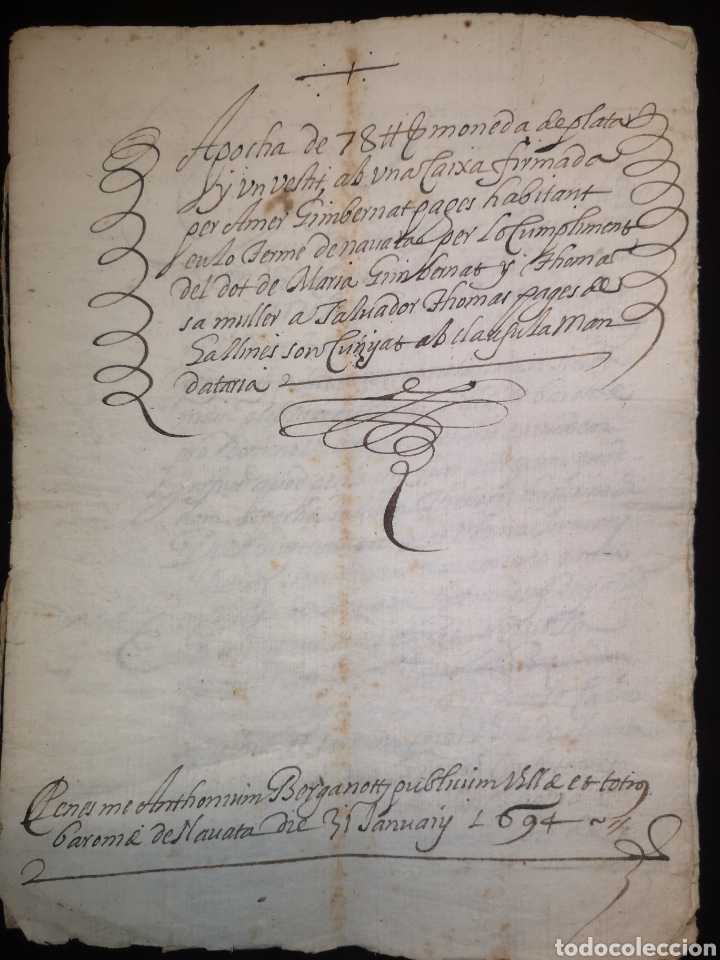 Apocha de 78 ₶ moneda de plata
y vn vestit, ab vna Caixa firmada
per Amer Gimbernat pages habitant
en lo Terme de navata per lo Cumpliment
del dot de Maria Gimbernat y Thomas
sa muller a Saluador Thomas pages de
Sallines son Cunyat ab clausula Man
dataria
Penes me Anthonium publicum Villæ et totius
baroniæ de Navata die 31 Januarij 1694
todocoleccion